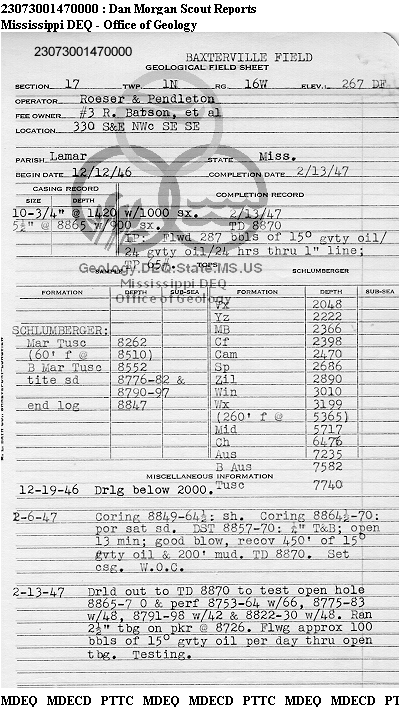 23073001470000 : Dan Morgan Scout Reports
Mississippi DEQ - Office of Geology
23073001470000
BAXTERVILLE FIELD
GEOLOGICAL FIELD SHEET
SECTION 17 TWP. 1N RG. 16W ELEV. 267 DF
OPERATOR Roeser & Pendleton
FEE OWNER #3 R. Batson, et al
LOCATION 330 S&E NWc SE SE
PARISH Lamar STATE Miss.
BEGIN DATE 12/12/46 COMPLETION DATE 2/13/47
CASING RECORD COMPLETION RECORD
SIZE DEPTH
10-3/4" @ 1420 w/1000 sx. 2/13/47
5½" @ 8865 w/900 sx. TD 8870
IP: Flwd 287 bbls of 15° gvty oil/
24 gvty oil/24 hrs thru 1" line;
TP 95#.
Geology.DEQ.State.MS.US
SAMPLE TOPS SCHLUMBERGER
Mississippi DEQ
Office of Geology
FORMATION DEPTH SUB-SEA FORMATION DEPTH SUB-SEA
Vx 2048
Yz 2222
SCHLUMBERGER: MB 2366
Mar Tusc 8262 Cf 2398
(60' f @ 8510) Cam 2470
B Mar Tusc 8552 Sp 2686
tite sd 8776-82 & Zil 2890
8790-97 Win 3010
end log 8847 Wx 3199
(260' f @ 5365)
Mid 5717
Ch 6476
Aus 7235
B Aus 7582
MISCELLANEOUS INFORMATION
12-19-46 Drlg below 2000. Tusc 7740
2-6-47 Coring 8849-64½: sh. Coring 8864½-70:
por sat sd. DST 8857-70: ¼" T&B; open
13 min; good blow, recov 450' of 15°
gvty oil & 200' mud. TD 8870. Set
csg. W.O.C.
2-13-47 Drld out to TD 8870 to test open hole
8865-7 0 & perf 8753-64 w/66, 8775-83
w/48, 8791-98 w/42 & 8822-30 w/48. Ran
2½" tbg on pkr @ 8726. Flwg approx 100
bbls of 15° gvty oil per day thru open
tbg. Testing.
MDEQ MDECD PTTC MDEQ MDECD PTTC MDEQ MDECD PT